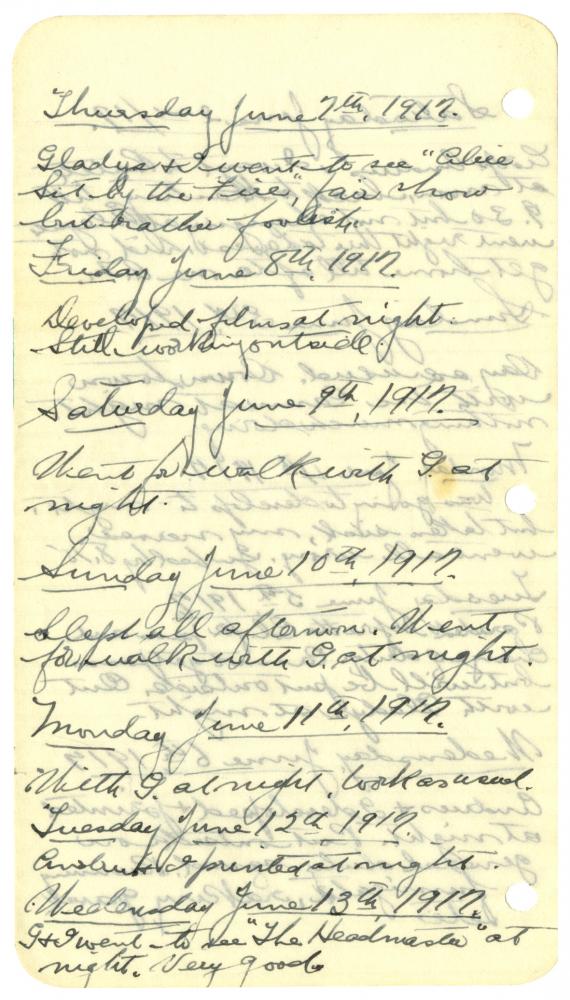 Thursday June 7th, 1917.
Gladys & I went to see "Alice
Sit by the Fire", fair show
but rather foolish.
Friday June 8th, 1917.
Developed films at night.
Still working outside.
Saturday June 9th, 1917.
Went for walk with G. at
night.
Sunday June 10th, 1917.
Slept all afternoon. Went
for walk with G. at night.
Monday June 11th, 1917.
With G. at night. Work as usual.
Tuesday June 12th 1917.
& I printed at night.
Wednesday June 13th, 1917.
G & I went to see "The Headmaster" at
night. Very good.